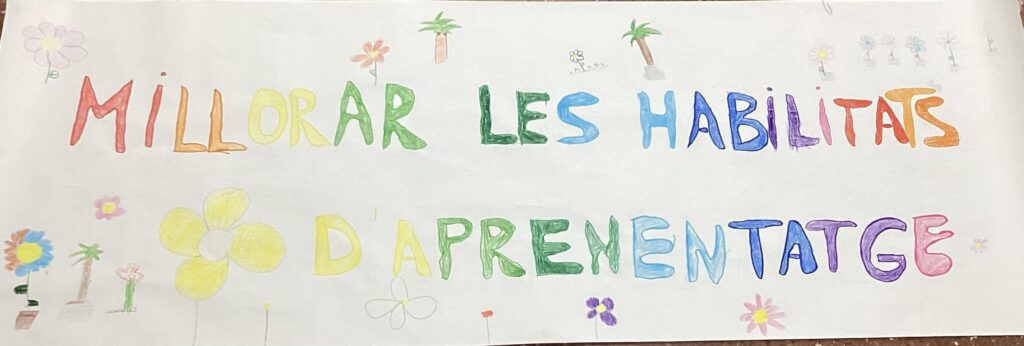 MiLLORAR LES HABiLiTATS
D'APRENENTATGE